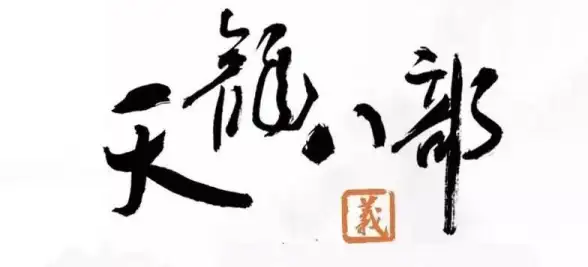 天龍八部
義